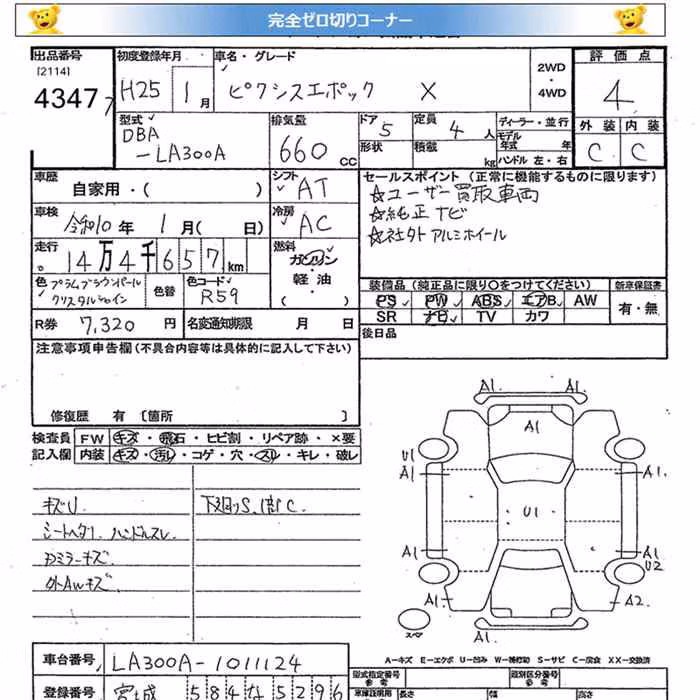 完全ゼロ切りコーナー
出品番号
[2114]
4347
初度登録年月
H25 1月
車名・グレード
ピクシスエポック X
2WD
・
4WD
評価点
4
型式
DBA
-LA300A
排気量
660 cc
ドア 5
形状
定員 4人
積載 kg
ディーラー・並行
モデル年式 年
ハンドル 左・右
外装 内装
C C
車歴
自家用・( )
シフト
AT
セールスポイント (正常に機能するものに限ります)
☆ユーザー買取車両
☆純正ナビ
☆社外アルミホイール
車検
令和10年 1月( 日)
冷房
AC
走行
14万4千657km
燃料
ガソリン
・
軽油
・
( )
色
プラムブラウンパール
クリスタルシャイン
色替
色コード
R59
装備品 (純正品に限り○をつけてください)
新車保証書
PS PW ABS エアB AW
SR ナビ TV カワ
有・無
R券 7,320円
名変通知期限 月 日
後日品
注意事項申告欄 (不具合内容等は具体的に記入して下さい)
修復歴 有 [箇所 ]
検査員
記入欄
FW キズ・飛石・ヒビ割・リペア跡・×要
内装 キズ・汚レ・コゲ・穴・スレ・キレ・破レ
キズU
シートヘタリ、ハンドルスレ
Dミラーキズ
外AWキズ
下廻りS、1部C
A1 A1
A1
U1
A1 A1
U1
A1 A1
U2
A1 A2
A1
スペア
A-キズ E-エクボ U-凹み W-補修跡 S-サビ C-腐食 XX-交換済
車台番号 LA300A-1011124
型式指定番号
参考
類別区分番号
参考
登録番号 宮城 584 な 5296
車庫証明用
長さ 幅 高さ